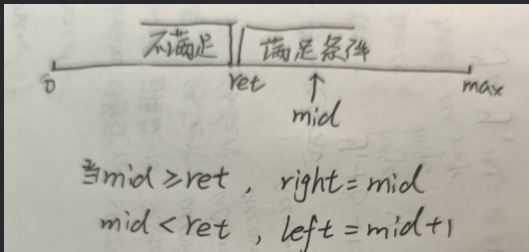 不满足 满足条件
0 ret mid max
当mid≥ret, right=mid
mid<ret, left=mid+1